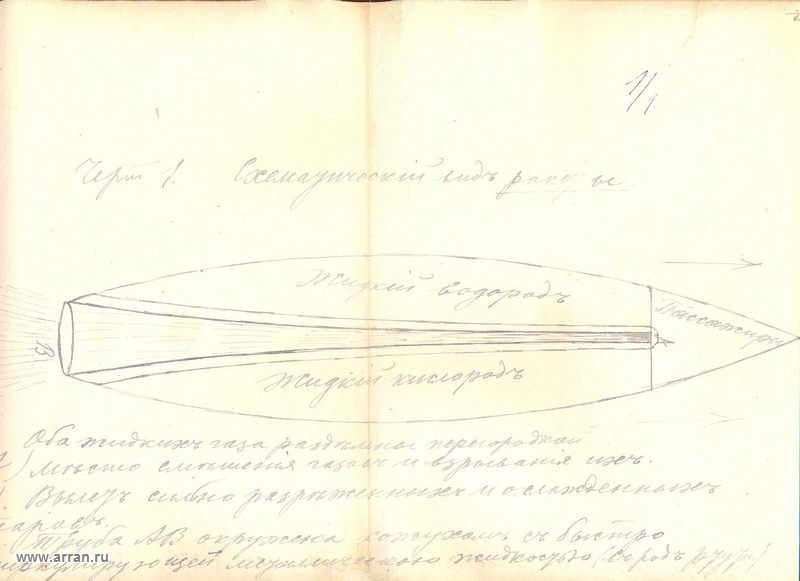 1/1
Черт 1. Схематическій видъ ракеты.
Жидкій водородъ
Пассажиры
В
Жидкій кислородъ
Оба жидкихъ газа раздѣлены перегородкой
Мѣсто смѣшенія газовъ и взрыванія ихъ.
Вылетъ сильно разрѣженныхъ и охлажденныхъ
паровъ.
Труба АВ окружена кожухомъ съ быстро
циркулирующей металлическою жидкостью (въ родѣ ртути)
www.arran.ru